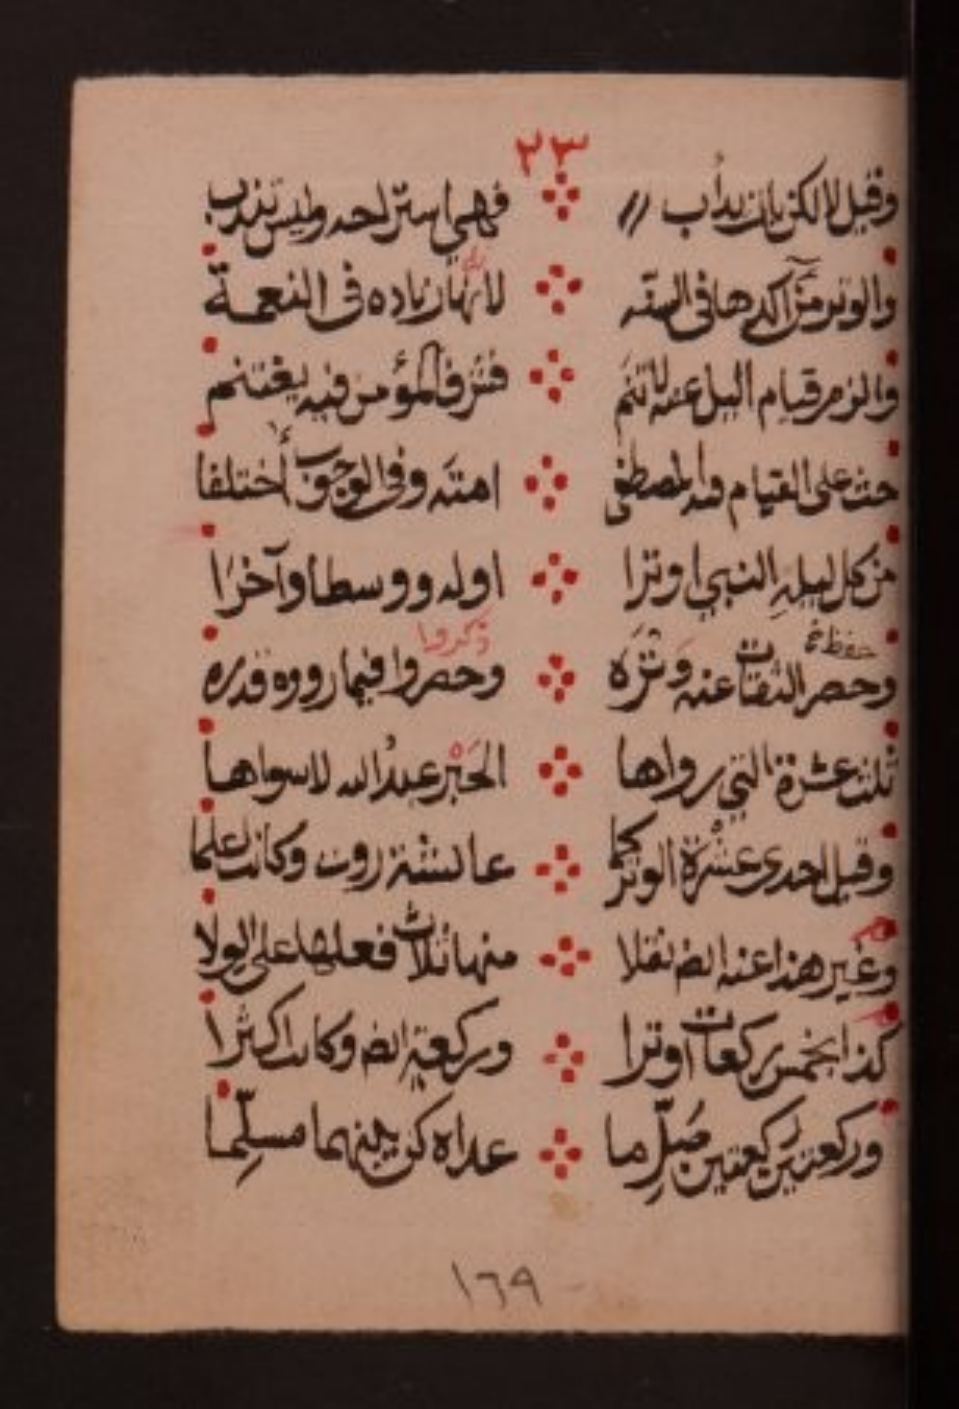 ٢٣
وقيل لا لكن بان يدأب فهي استر احد وليس تندب
والوتر من آكدها في السنه لانها زياده في النعمة
والزم قيام اليل عنه لا تنم فشرف المؤمن فيه يغتنم
حث على القيام فيه المصطفى امته وفي الوجوب أختلفا
من كل ليله النبي اوترا اوله ووسطا وآخرا
حفظ ذكروا
وحصر الثقات عنه وتره وحصروا فيما رووه قدره
ثلث عشرة التي رواها الحَبْر عبدُ الله لا سواها
وقيل احدى عشْرة الوتر كما عائشة روت وكانت اعلما
وغير هذا عنه ايضا نقلا منها ثلاث فعلها على الولا
كذا بخمس ركعات اوترا وركعة ايضا وكانت اكثرا
وركعتين ركعتين صَلِّ ما عداه كن بينهما مسلِّما
١٦٩